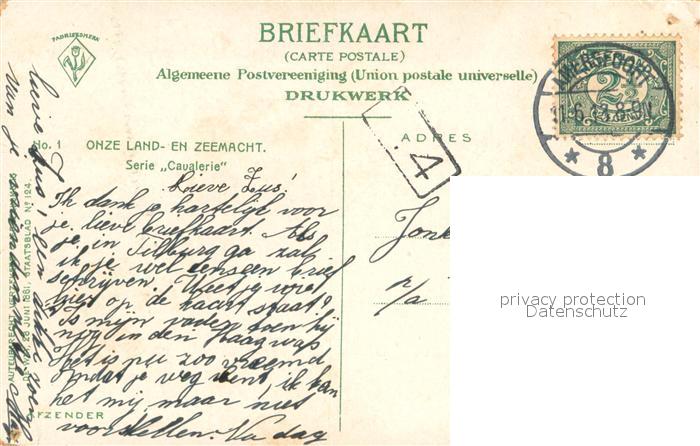 FABRIEKSMERK
BRIEFKAART
(CARTE POSTALE)
Algemeene Postvereeniging (Union postale universelle)
DRUKWERK
AMERSFOORT
2½
8
4
No. 1 ONZE LAND- EN ZEEMACHT.
Serie „Cavalerie"
ADRES
Lieve Zus!
Ik dank je hartelijk voor
je lieve briefkaart. Als
je in Tilburg ga zal
ik je wel eenseen brief
schrijven. Weet je wie
er op de kaart staat?
Is mijn vader toen hij
nog in den Haag was
Het is me zoo vreemd
omdat je weg bent, ik kan
het mij maar niet
voorstellen. Nu dag
lieve Zus
van je
Jonk
p/a
AFZENDER
AUTEURSRECHT VERZEKERD
DE WET, 28 JUNI 1881, STAATSBLAD No 124.
privacy protection
Datenschutz